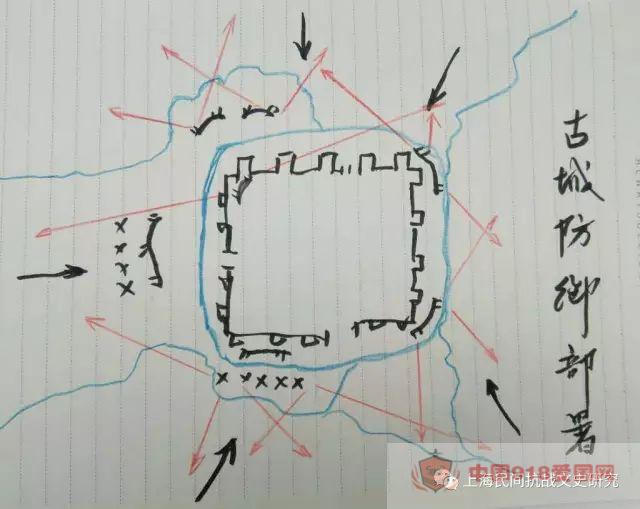 古城防御部署
中国918爱国网
上海民间抗战文史研究